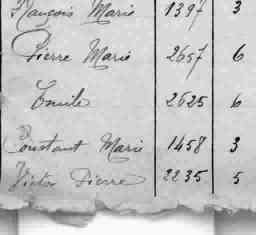 François Marie 1397 3
Pierre Marie 2657 6
Emile 2625 6
Constant Marie 1458 3
Victor Pierre 2235 5